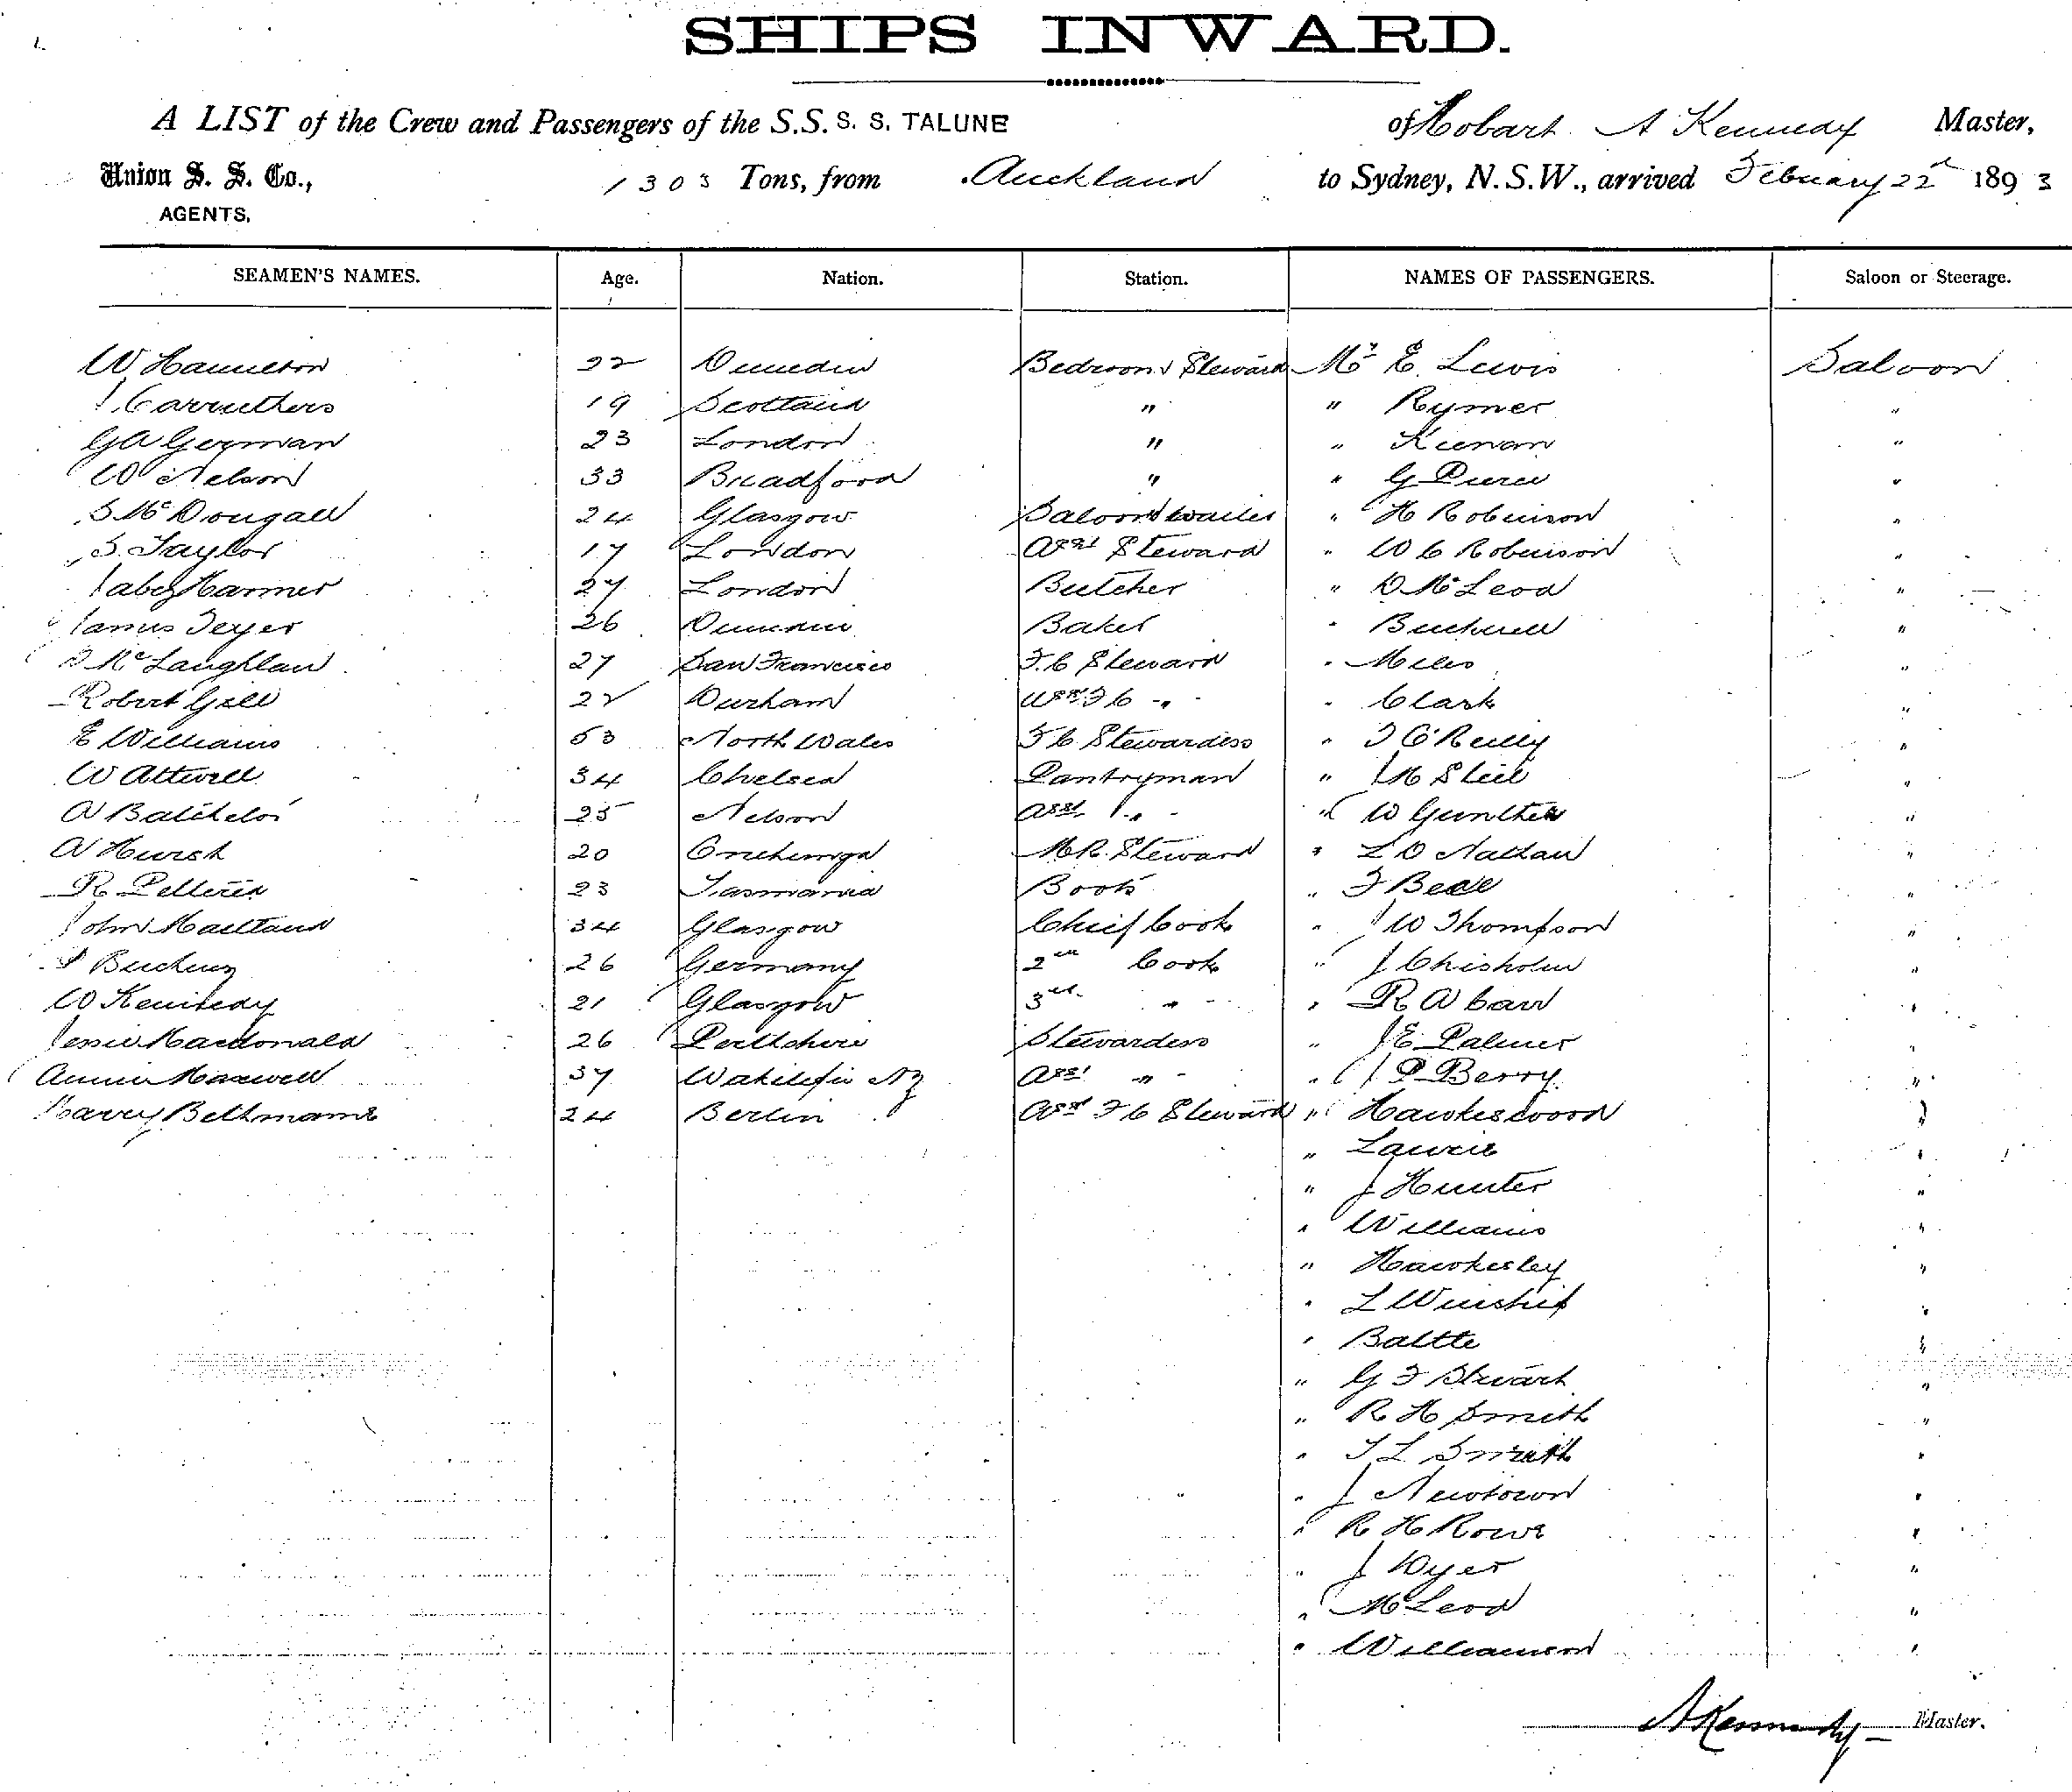 SHIPS INWARD.
A LIST of the Crew and Passengers of the S.S. S. S. TALUNE of Hobart A Kennedy Master,
Union S. S. Co., 1303 Tons, from Auckland to Sydney, N.S.W., arrived February 22nd 1893
AGENTS.
SEAMEN'S NAMES. Age. Nation. Station. NAMES OF PASSENGERS. Saloon or Steerage.
W Hamilton 22 Dunedin Bedroom Steward Mr E. Lewis Saloon
J Carruthers 19 Scotland " " Rymer "
GA Gorman 23 London " " Keenan "
W Nelson 33 Bradford " " G "
S McDougall 24 Glasgow Saloon Waiter " H Robinson "
S. Taylor 17 London Asst Steward " W C Robinson "
Harmer 27 London Butcher " D McLeod "
James 26 Dunedin Baker " "
McLaughlan 27 San Francisco F.C Steward " Miles "
Robert Gill 22 Durham Asst F C " " Clark "
E Williams 53 North Wales F C Stewardess " O'Reilly "
W Attwell 34 Chelsea Pantryman " "
A Batchelor 25 Nelson Asst " " W Gunther "
A Hurst 20 Onehunga M.R. Steward " L D Nathan "
R Pellerin 23 Tasmania " "
John Maitland 34 Glasgow Chief Cook " J W Thompson "
26 Germany 2nd Cook " J Chisholm "
W Kennedy 21 Glasgow 3rd " " R A Carr "
Jessie Macdonald 26 Perthshire Stewardess " J E Palmer "
Annie Maxwell 37 NZ Asst " " J P Berry "
Harry 24 Berlin Asst F C Steward " Hawkeswood "
" Laurie "
" J Hunter "
" Williams "
" Hawkesley "
" L Winship "
" Battle "
" G F Stewart "
" R H Smith "
" T L Smith "
" J Newtown "
" R H Rowe "
" J Dyer "
" McLeod "
" Williamson "
A Kennedy Master.